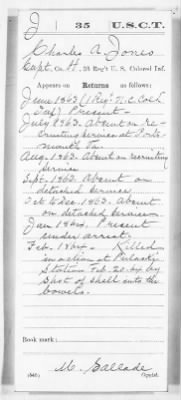 J | 35 | U.S.C.T.
Charles A. Jones
Capt., Co. H, 35 Reg't U. S. Colored Inf.
Appears on Returns as follows:
June 1863 (1 Reg. N.C. Col'd
Inf) Present
July 1863. Absent on re-
cruiting service at Ports-
mouth Va.
Aug. 1863. Absent on recruiting
service
Sept. 1863. Absent on
detached service
Feb to Dec. 1863. Absent
on detached service
Jan 1864. Present
under arrest.
Feb. 1864. Killed
in action at
Station Feb. 20. 64 by
shot of shell into the
bowels.
Book mark:
M. Gallade
(546) Copyist.